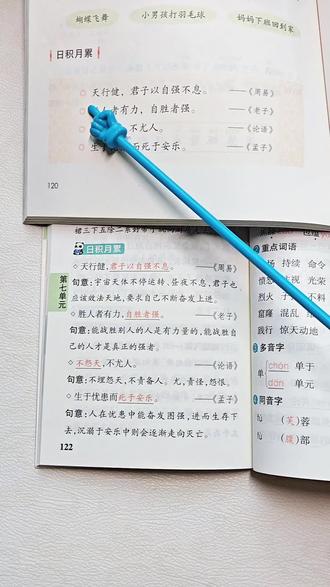 蝴蝶飞舞 小男孩打羽毛球 妈妈下班回到家
日积月累
天行健，君子以自强不息。 ——《周易》
人者有力，自胜者强。 ——《老子》
不尤人。 ——《论语》
生 而死于安乐。 ——《孟子》
120
日积月累
第七单元
◇天行健，君子以自强不息。 ——《周易》
句意：宇宙天体不停运转、昼夜不息，君子也
应该效法天地，要求自己不断奋发上进。
◇胜人者有力，自胜者强。 ——《老子》
句意：能战胜别人的人是有力量的，能战胜自
己的人才是真正的强者。
◇不怨天，不尤人。 ——《论语》
句意：不埋怨天，不责备人。尤，责怪，怨恨。
◇生于忧患而死于安乐。 ——《孟子》
句意：人在忧患中能奋发图强，进而生存下
去，沉溺于安乐中则会逐渐走向灭亡。
122
重点词语
持续 命令
光荣
烈火 不料
窟窿 混乱
践行 惊天动地
3 多音字
单 chán 单于
dān 单元
4 同音字
fú （芙）蓉
fǔ （腹）部